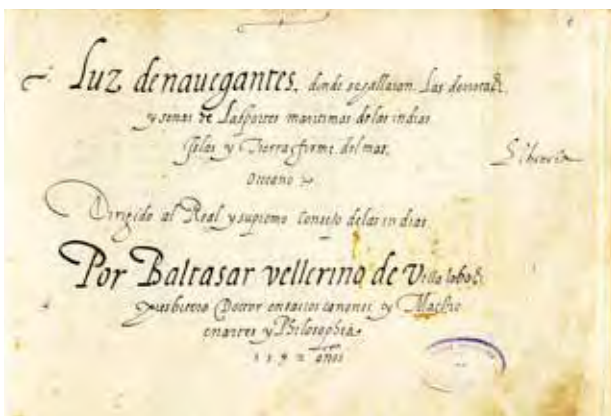 Luz de nauegantes. donde se hallaran. Las derrotas.
y senas de Las partes maritimas de las indias
Islas y Tierra firme del mar.
Occeano
Dirigido al Real y supremo Consejo de las indias
Por Baltasar vellerino de Villa lobos.
presbitero Doctor en sacros canones, y Maestro
en artes y Philosophia
1592 años